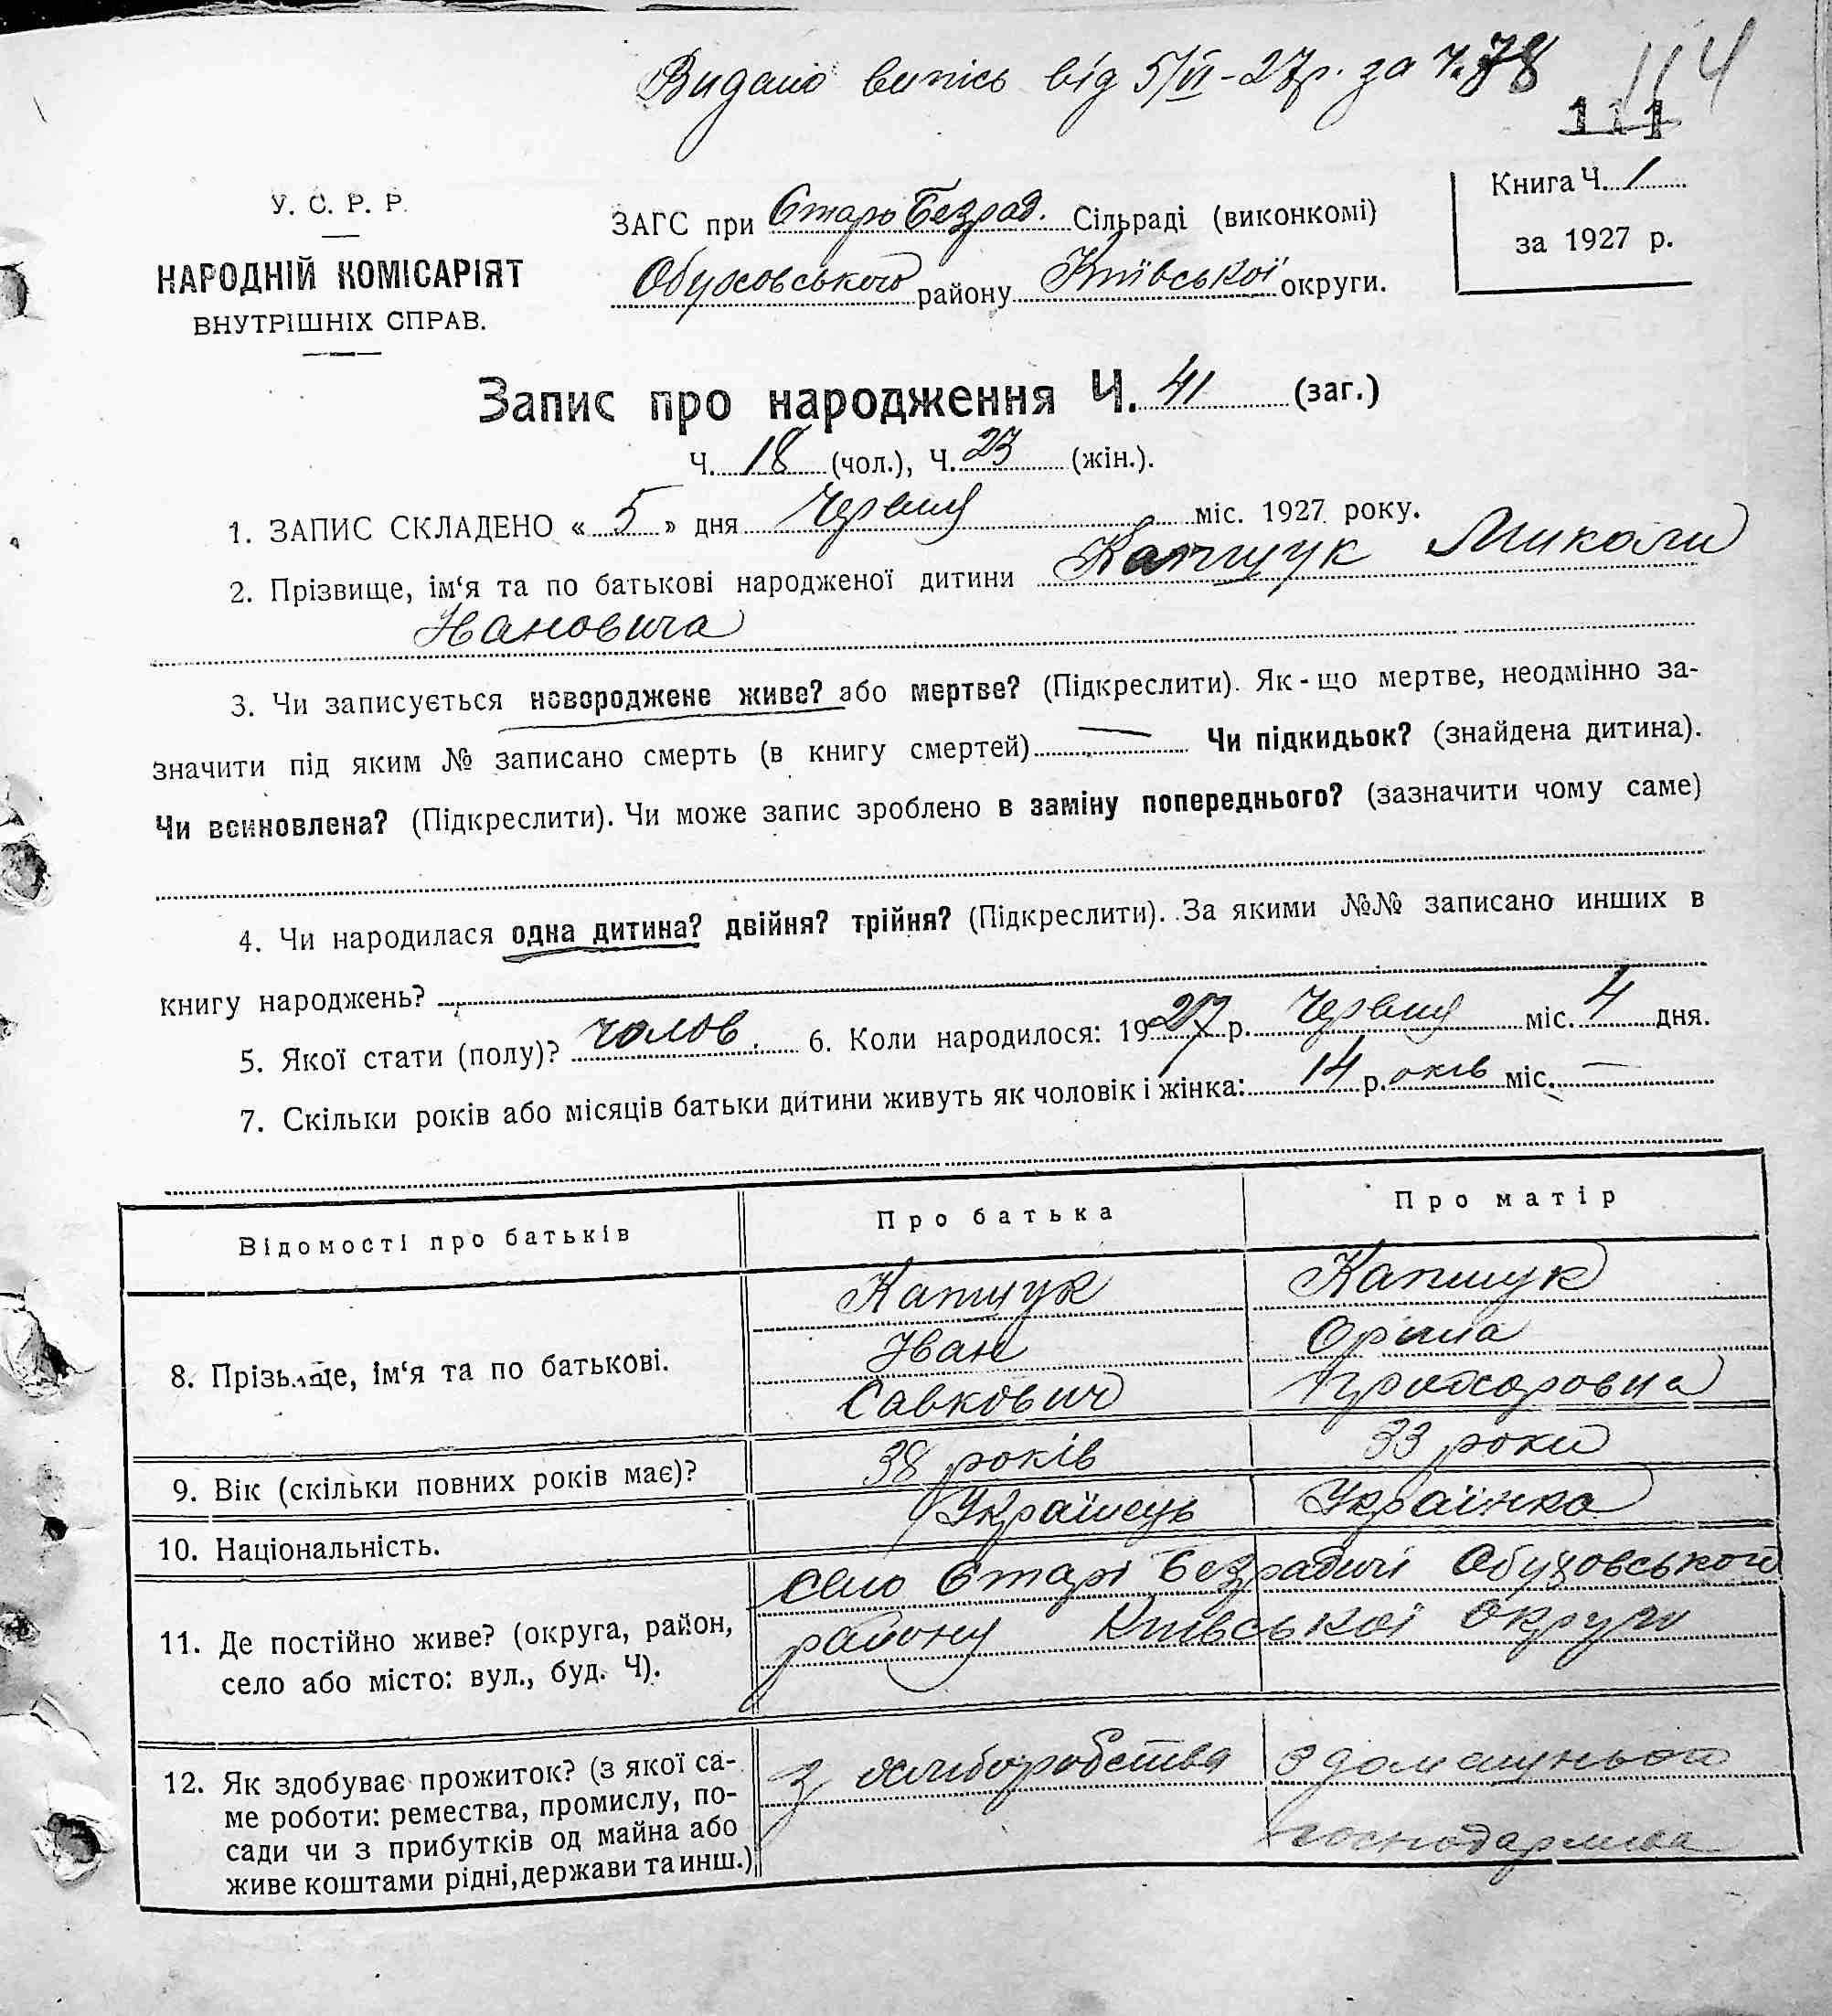 Видано випісь від 5/VI-27р. за Ч. 78
114
111
У. С. Р. Р.
НАРОДНІЙ КОМІСАРІЯТ
ВНУТРІШНІХ СПРАВ.
ЗАГС при Старо Безрад. Сільраді (виконкомі)
Обуховського району Київської округи.
Книга Ч. 1
за 1927 р.
Запис про народження Ч. 41 (заг.)
Ч. 18 (чол.), Ч. 23 (жін.).
1. ЗАПИС СКЛАДЕНО « 5 » дня Червня міс. 1927 року.
2. Прізвище, ім‘я та по батькові народженої дитини Капшук Миколи
Івановича
3. Чи записується новороджене живе? або мертве? (Підкреслити). Як-що мертве, неодмінно за-
значити під яким № записано смерть (в книгу смертей) — Чи підкидьок? (знайдена дитина).
Чи всиновлена? (Підкреслити). Чи може запис зроблено в заміну попереднього? (зазначити чому саме)
4. Чи народилася одна дитина? двійня? трійня? (Підкреслити). За якими №№ записано инших в
книгу народжень?
5. Якої стати (полу)? чолов. 6. Коли народилося: 1927 р. Червня міс. 4 дня.
7. Скільки років або місяців батьки дитини живуть як чоловік і жінка: 14 р.оків міс. —
Відомості про батьків Про батька Про матір
8. Прізвище, ім‘я та по батькові.
Капшук Капшук
Іван Орина
Савкович Прохоровна
9. Вік (скільки повних років має)? 38 років 33 роки
10. Національність. Українець Українка
11. Де постійно живе? (округа, район,
село або місто: вул., буд. Ч).
село Старі Безрадичі Обуховського
району Київської округи
12. Як здобуває прожиток? (з якої са-
ме роботи: ремества, промислу, по-
сади чи з прибутків од майна або
живе коштами рідні, держави та инш.)
З хліборобства З домашнього
господарства